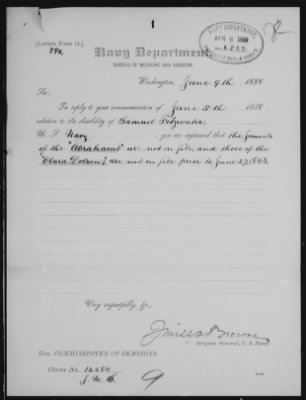 [LETTER FORM 10.]
Navy Department,
BUREAU OF MEDICINE AND SURGERY,
NAVY DEPARTMENT
Washington, June 9th 1888.
Sir:
In reply to your communication of June 5th 1888,
relative to the disability of Samuel Fitzwater,
U. S. Navy, you are informed that the Journals
of the "Abraham" are not on file, and those of the
"Clara Dolsen," are not on file prior to June 27, 1863.
Very respectfully, &c.
J Mills Browne
Surgeon General, U. S. Navy.
Hon. COMMISSIONER OF PENSIONS.
Claim No.
9